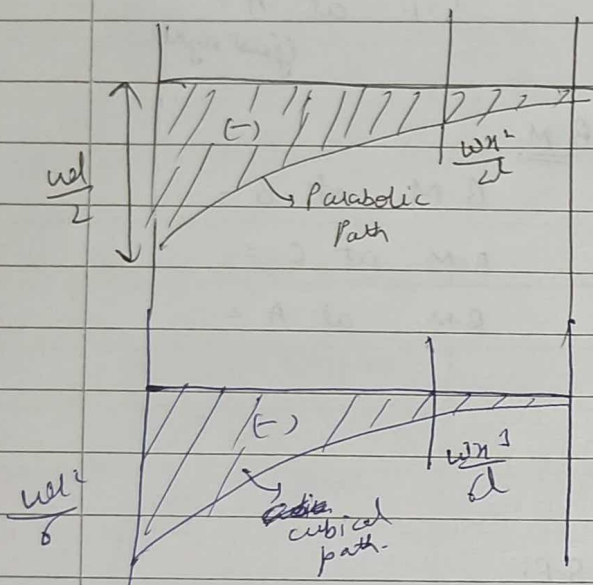 (-)
wl/2
wx²/2l
Parabolic
Path
(-)
wx³/6l
wl²/6
cubical
path.